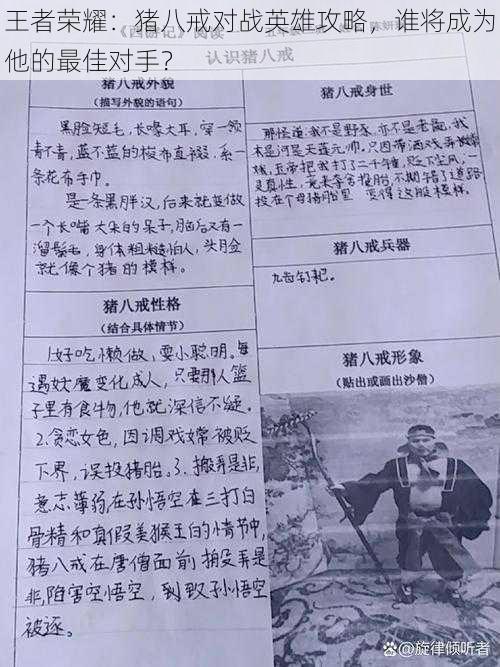 王者荣耀：猪八戒对战英雄攻略，谁将成为
他的最佳对手？
《西游记》阅读
认识猪八戒
猪八戒外貌
（描写外貌的语句）
黑脸短毛，长喙大耳，穿一领
青不青，蓝不蓝的梭布直裰，系一
条花布手巾。
是一条黑胖汉，后来就变做
一个长嘴大耳的呆子，脑后又有一
溜鬃毛，身体粗糙怕人，头脸
就像个猪的模样。
猪八戒身世
那怪道：我不是野豕，亦不是老彘，我
本是河是天蓬元帅，只因带酒戏弄嫦
娥，玉帝把我打了二千锤，贬下尘凡，一
灵真性，竟来夺舍投胎，不期错了道路
投在个母猪胎里 变得这般模样。
猪八戒兵器
九齿钉耙。
猪八戒性格
（结合具体情节）
1.好吃懒做，耍小聪明。每
遇妖魔变化成人，只要那人篮
子里有食物，他就深信不疑。
2.贪恋女色，因调戏嫦被贬
下界，误投猪胎。3.搬弄是非，
意志薄弱，在孙悟空在三打白
骨精和真假美猴王的情节中，
猪八戒在唐僧面前搬弄是
非，陷害空悟空，到致孙悟空
被逐。
猪八戒形象
（贴出或画出沙僧）
@旋律倾听者